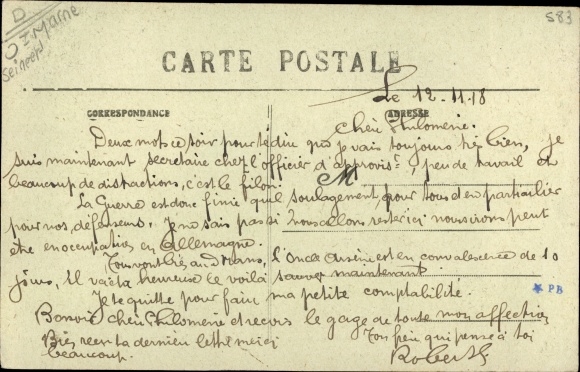 D
S-&-Marne
583
CARTE POSTALE
Le 12-11-18
CORRESPONDANCE
ADRESSE
Chère Philomène.
Deux mots ce soir pour te dire que je vais toujours très bien, je
suis maintenant secrétaire chez l'officier d'approvist, peu de travail et
beaucoup de distractions, c'est le filon.
M
La Guerre est donc finie quel soulagement pour tous en particulier
pour nos défenseurs. Je ne sais pas si nous allons rester ici nous irons peut
etre en occupation en Allemagne.
Tous vont bien au Mans, l'Oncle Arsène est en convalescence de 10
jours, il va être heureux le voilà sauvé maintenant.
Je te quitte pour faire ma petite comptabilité.
* PB
Bonsoir chère Philomène et reçois le gage de toute mon affection
Ton frère qui pense à toi
Bien reçu ta dernière lettre merci
beaucoup.
Robert